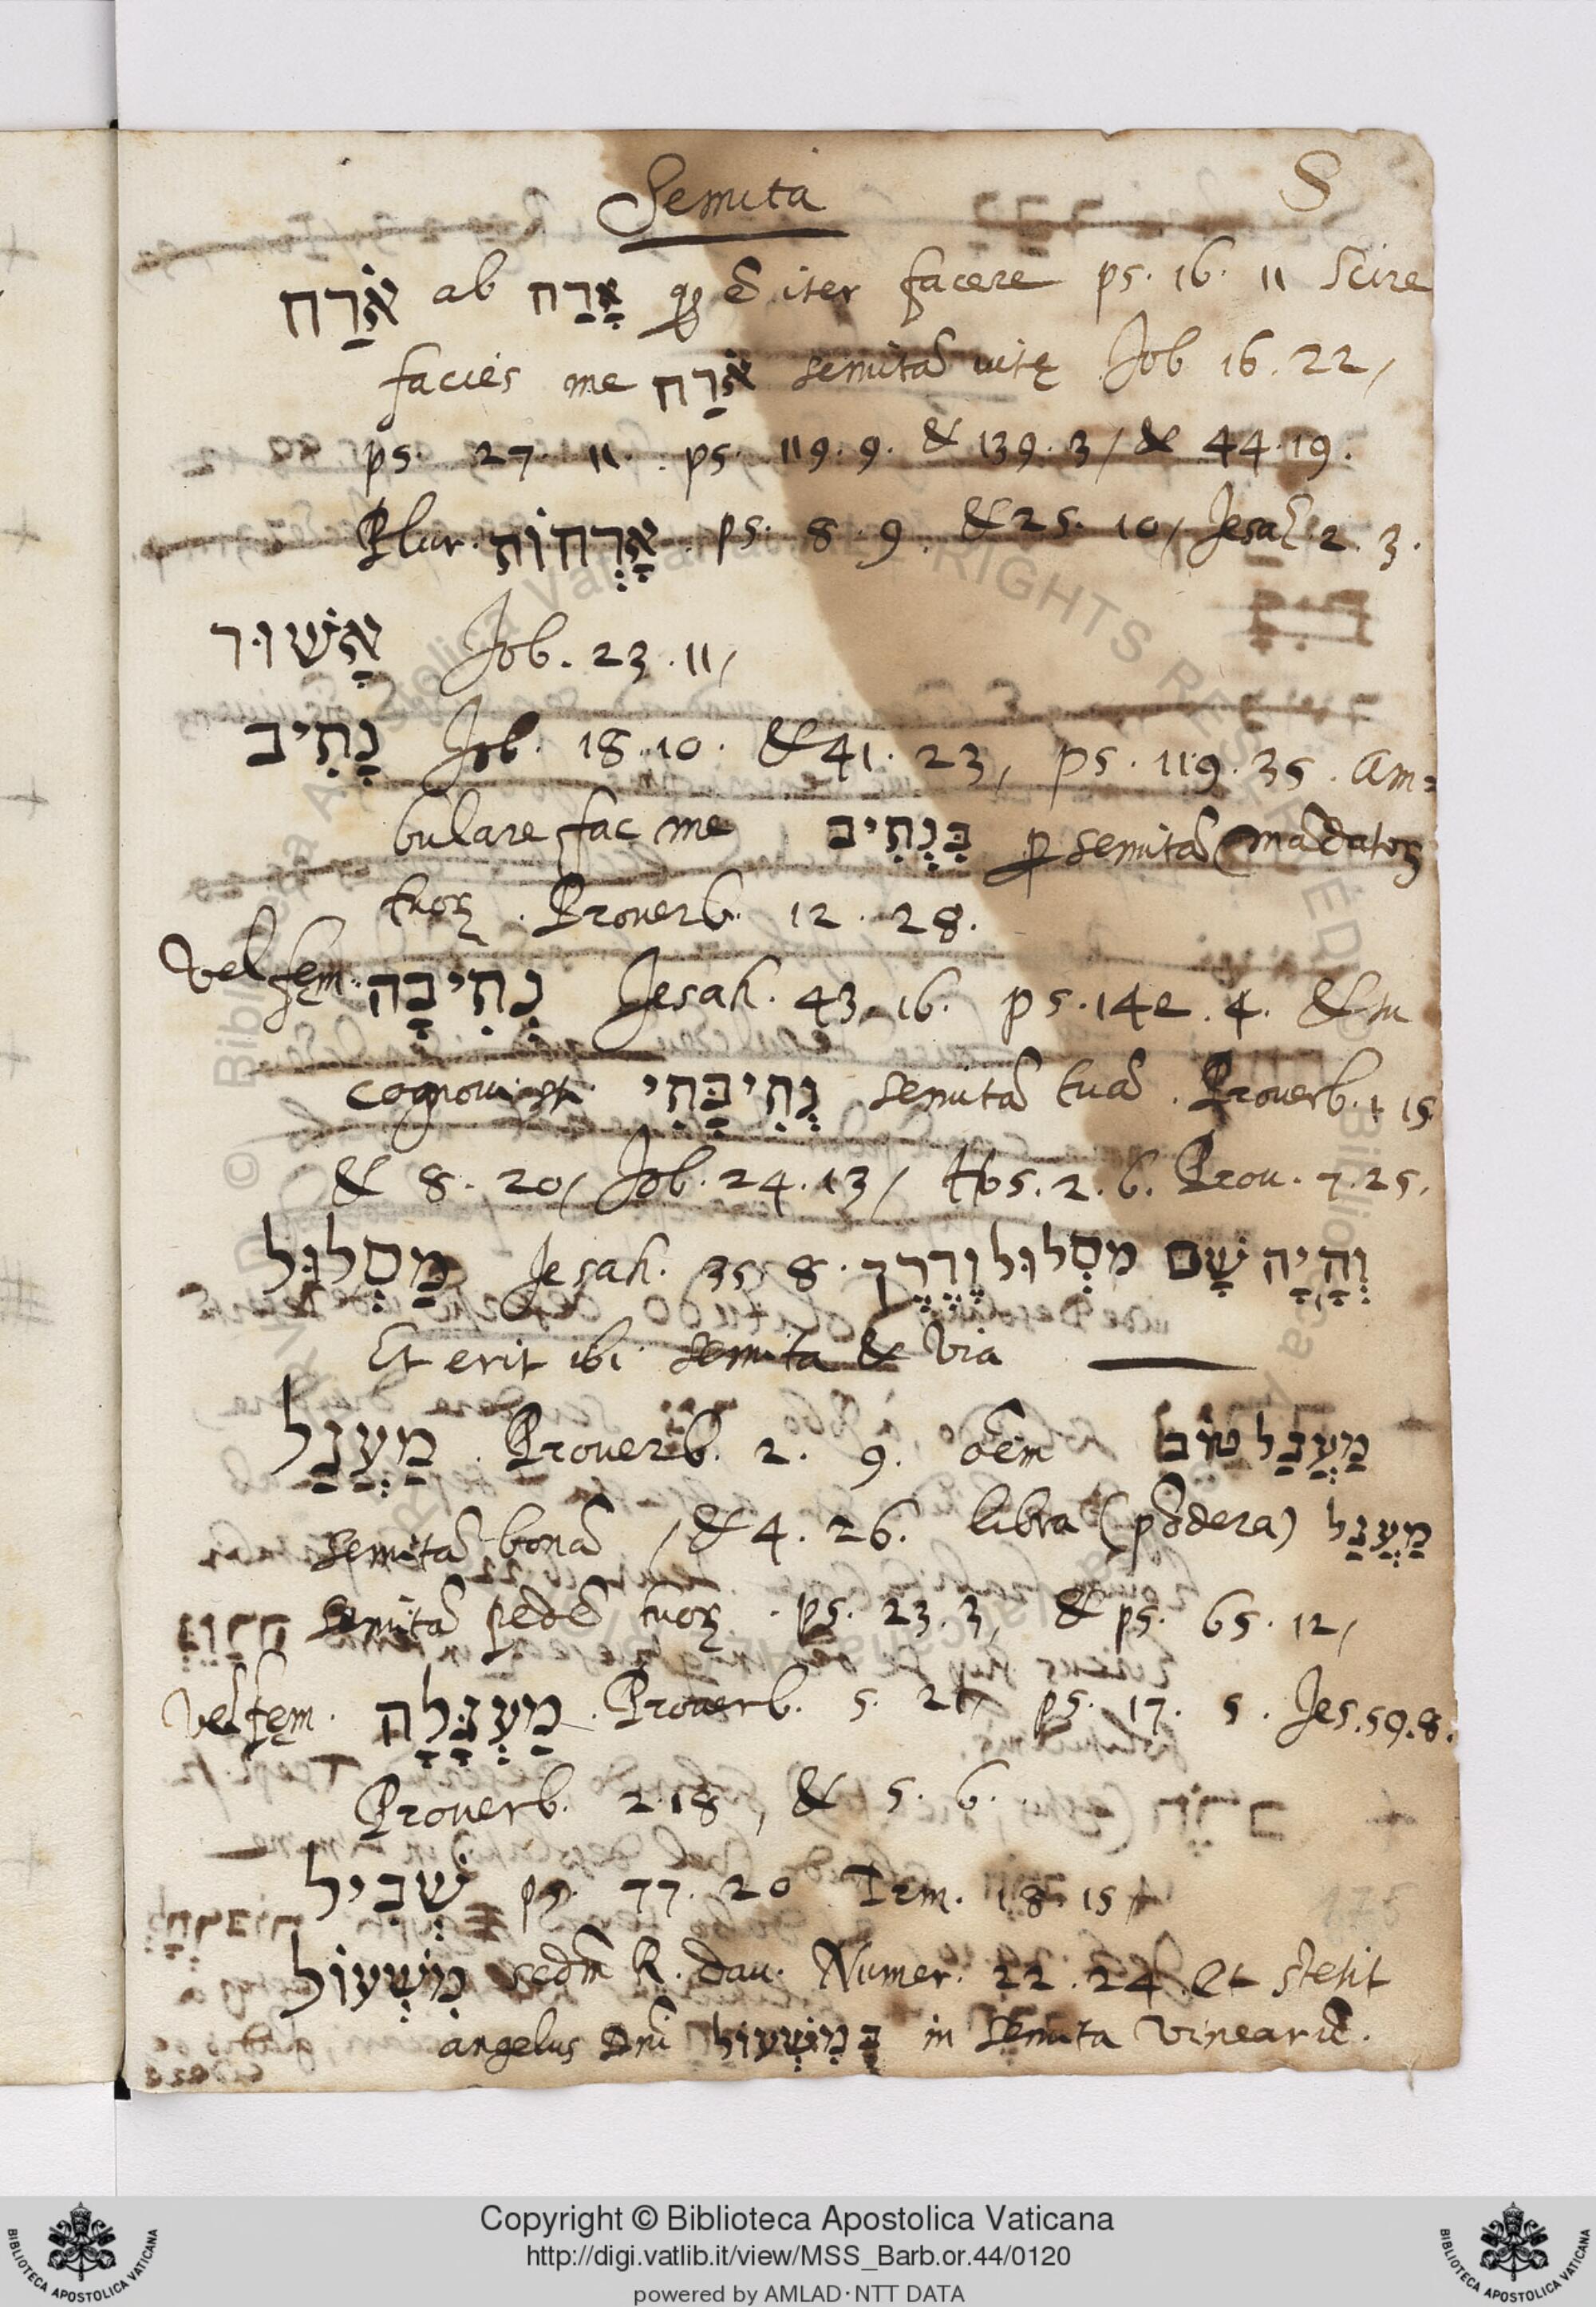 S
Semita
אֹרַח ab אָרַח qđ ē iter facere ps. 16. 11 Scire
facies me אֹרַח semitā vitę Job 16. 22,
ps. 27. 11. ps. 119. 9. & 139. 3, & 44. 19.
Plur. אֳרְחוֹת. ps. 8. 9. & 25. 10, Jesah. 2. 3.
אַשּׁוּר Job. 23. 11,
נָתִיב Job. 18. 10. & 41. 23, ps. 119. 35. Am=
bulare fac me בִּנְתִיב ꝑ semitā mādatoꝝ
tuoꝝ. Prouerb. 12. 28.
Vel fęm. נְתִיבָה Jesah. 43. 16. ps. 142. 4. & tu
cognouist. נְתִיבָתִי semitā tuā. Prouerb. 1. 15
& 8. 20, Job. 24. 13, Hos. 2. 6. Prou. 7. 25.
מַסְלוּל Jesah. 35. 8. וְהָיָה שָׁם מסְלוּל וָדֶרֶךְ
Et erit ibi semita & Via
מַעֲגַל. Prouerb. 2. 9. oēm מַעֲגַל טוֹב
semitā bonā, & 4. 26. libra (pōdera) מַעֲגַל
semitā pedū tuoꝝ. ps. 23. 3, & ps. 65. 12,
Vel fęm. מַעְגָּלָה. Prouerb. 5. 21, ps. 17. 5. Jes. 59. 8.
Prouerb. 2. 18, & 5. 6.
שְׁבִיל ps. 77. 20 Irm. 18. 15
מִשְׁעוֹל secdm R. dau. Numer. 22. 24. et stetit
angelus Dnī בְּמִשְׁעוֹל in Semita Vinearū.
Copyright © Biblioteca Apostolica Vaticana
http://digi.vatlib.it/view/MSS_Barb.or.44/0120
powered by AMLAD·NTT DATA
BIBLIOTECA APOSTOLICA VATICANA
BIBLIOTECA APOSTOLICA VATICANA